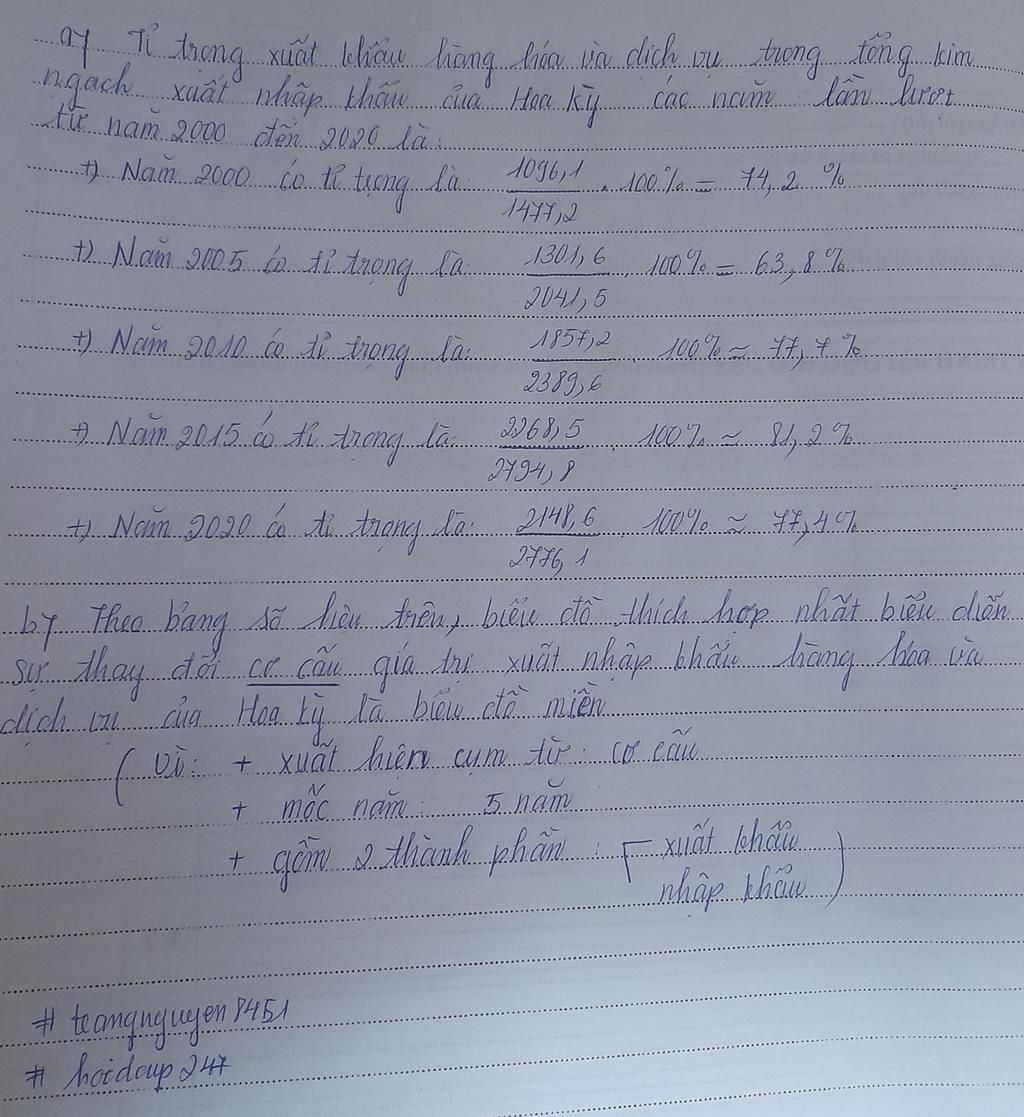 a) Tỉ trọng xuất khẩu hàng hóa và dịch vụ trong tổng kim
ngạch xuất nhập khẩu của Hoa Kỳ các năm lần lượt
từ năm 2000 đến 2020 là:
+) Năm 2000 có tỉ trọng là: 1096,1 / 1477,2 . 100% = 74,2 %
+) Năm 2005 có tỉ trọng là: 1301,6 / 2041,5 . 100% = 63,8%
+) Năm 2010 có tỉ trọng là: 1857,2 / 2389,6 . 100% ≈ 77,7 %
+) Năm 2015 có tỉ trọng là: 2268,5 / 2794,8 . 100% ≈ 81,2%
+) Năm 2020 có tỉ trọng là: 2148,6 / 2776,1 . 100% ≈ 77,4%
b) Theo bảng số liệu trên, biểu đồ thích hợp nhất biểu diễn
sự thay đổi cơ cấu giá trị xuất nhập khẩu hàng hóa và
dịch vụ của Hoa Kỳ là biểu đồ miền
( Vì: + xuất hiện cụm từ: cơ cấu
+ mốc năm: 5 năm
+ gồm 2 thành phần: [ xuất khẩu
nhập khẩu )
# teangnguyen8451
# hoidap247